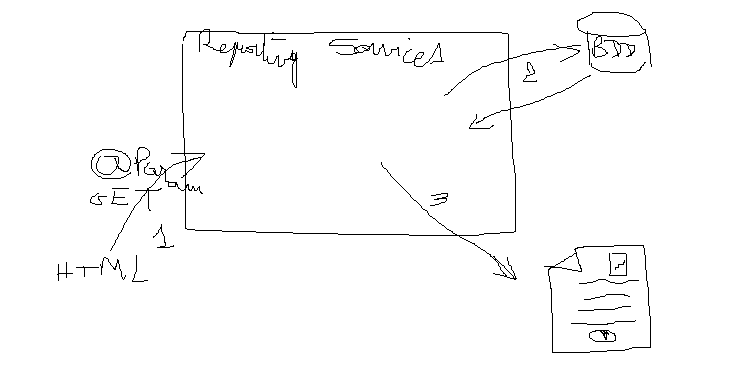 Reporting Services
BDD
2
@Param
GET
1
3
HTML